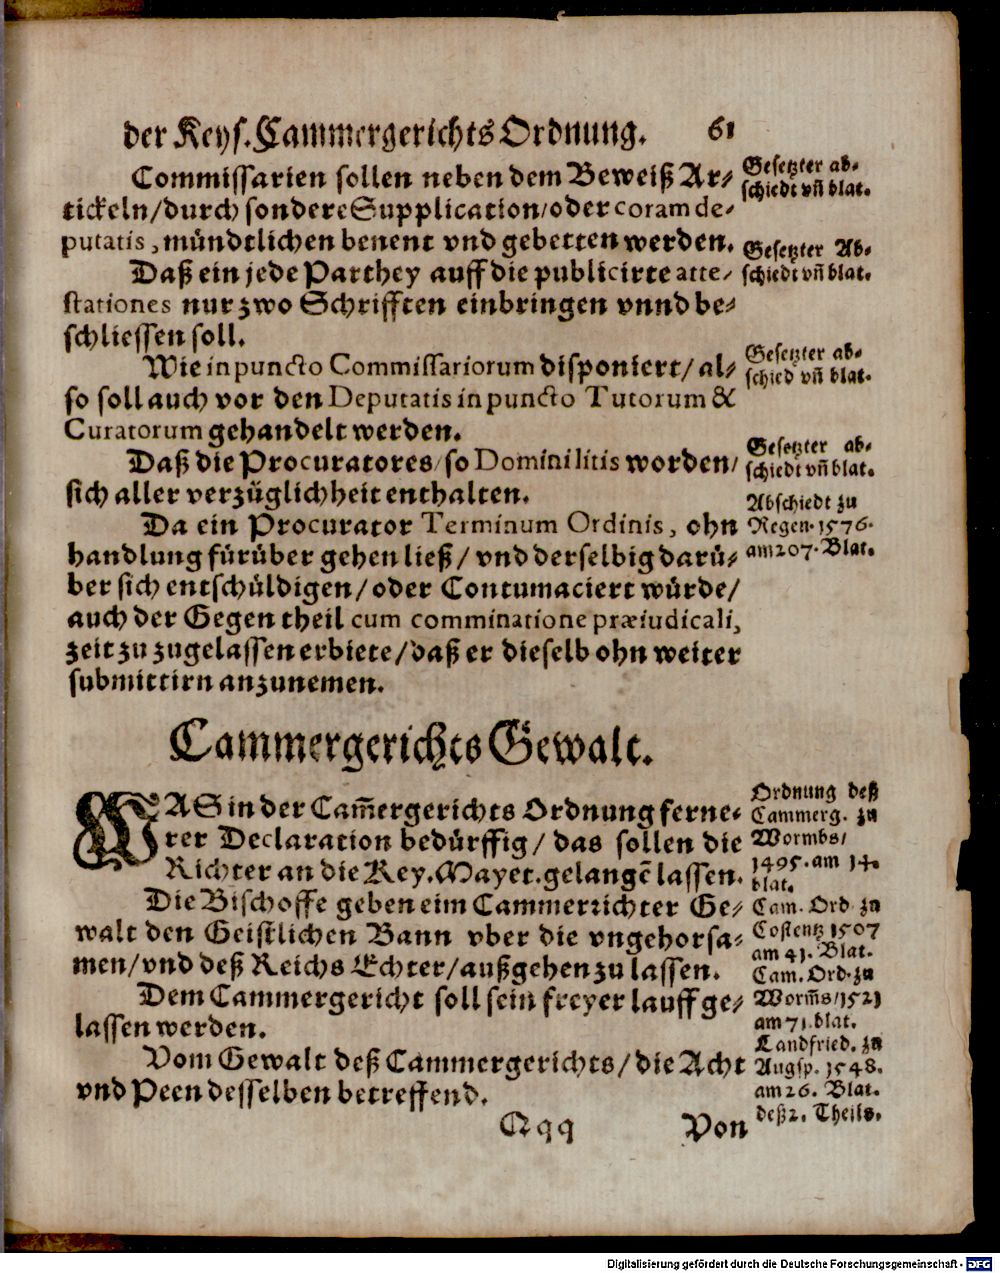 der Keys. Cammergerichts Ordnung. 61
Commissarien sollen neben dem Beweiß Ar-
tickeln/durch sondere Supplication/oder coram de-
putatis, mündtlichen benent vnd gebetten werden.
Daß ein jede Parthey auff die publicirte atte-
stationes nur zwo Schrifften einbringen vnnd be-
schliessen soll.
Wie in puncto Commissariorum disponiert/ al-
so soll auch vor den Deputatis in puncto Tutorum &
Curatorum gehandelt werden.
Daß die Procuratores/so Domini litis worden/
sich aller verzüglichheit enthalten.
Da ein Procurator Terminum Ordinis, ohn
handlung fürüber gehen ließ/ vnd derselbig darü-
ber sich entschüldigen/oder Contumaciert würde/
auch der Gegen theil cum comminatione præiudicali,
zeit zu zugelassen erbiete/daß er dieselb ohn weiter
submittirn anzunemen.
Gesetzter ab-
schiedt vñ blat.
Gesetzter Ab-
schiedt vñ blat.
Gesetzter ab-
schied vñ blat.
Gesetzter ab-
schiedt vñ blat.
Abschiedt zu
Regen. 1576.
am 207. Blat.
Cammergerichts Gewalt.
WAS in der Cam̃ergerichts Ordnung ferne-
rer Declaration bedürffig/ das sollen die
Richter an die Key. Mayet. gelangẽ lassen.
Die Bischoffe geben eim Cammerrichter Ge-
walt den Geistlichen Bann vber die vngehorsa-
men/vnd deß Reichs Echter/außgehen zu lassen.
Dem Cammergericht soll sein freyer lauff ge-
lassen werden.
Vom Gewalt deß Cammergerichts/die Acht
vnd Peen desselben betreffend.
Ordnung deß
Cammerg. zu
Wormbs/
1495. am 14.
blat.
Cam. Ord zu
Costentz 1507
am 41. Blat.
Cam. Ord. zu
Worm̃s/1521
am 71. blat.
Landfried. zu
Augsp. 1548.
am 26. Blat.
deß 2. Theils.
Qqq Von
Digitalisierung gefördert durch die Deutsche Forschungsgemeinschaft - DFG